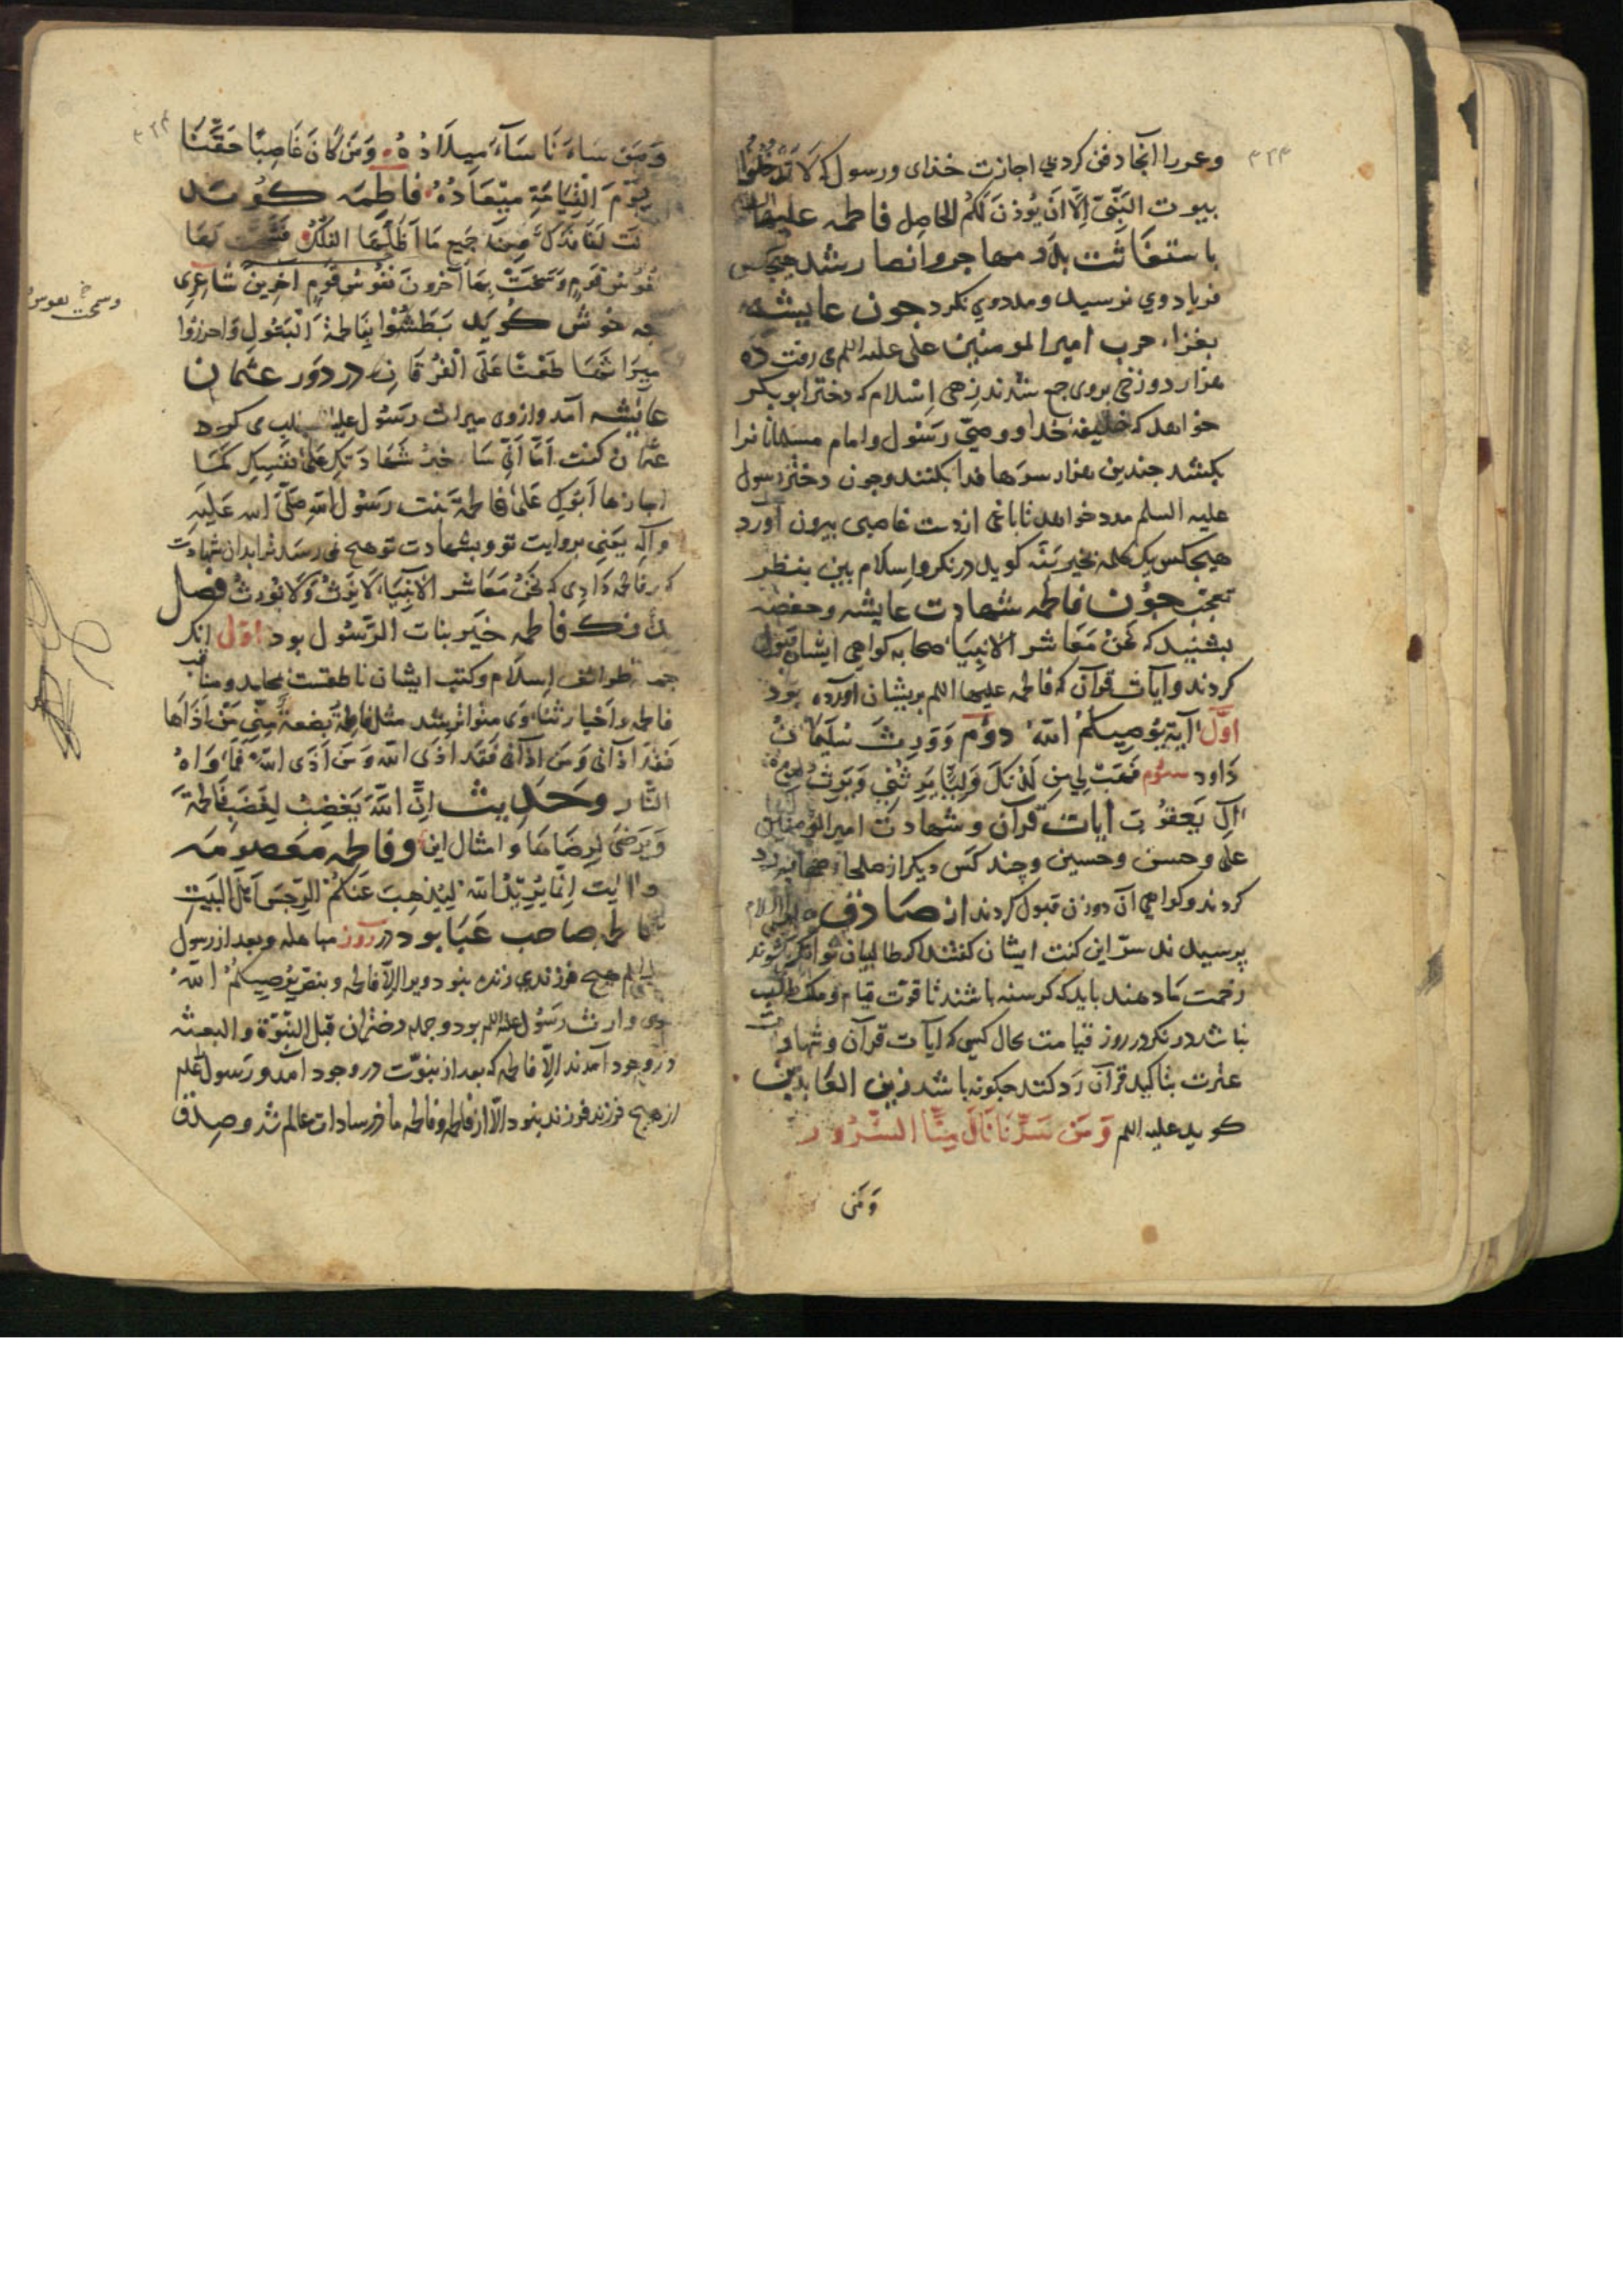 ۳۲۳
وعمر را آنجا دفن کردند بی اجازت خذای ورسول که لَا تَدْخُلُوا
بیوت النَّبِیّ اِلَّا اَن یُوذَنَ لَکُم الحاصل فاطمه علیها
باستغاثت بدر مهاجر وانصار شد هیچکس
فریاد وی نرسید ومددوی نکرد جون عایشه
بغزا، حرب امیرالمومنین علی علیه السلم می رفت ده
هزار دوزخی بروی جمع شدند زهی اِسْلام که دختر ابوبکر
خواهد که خلیفه خدا ووصیّ رَسُول وامام مسلمانانرا
بکشد جندین هزار سرها فدا بکنند وجون دختر رسول
علیه السلم مدد خواهد تا باغی از دست غاصبی بیرون آورد
هیچکس یک کلمه بخیر نَنه کوید در نکر واسلام بین بنظر
تعجّب جوُن فاطمه شهادت عایشه وحفصه
بشنید که نَحْنُ مَعَاشر الانبیَا، صحابه کواهی ایشان قبول
کردند وآیات قرآن که فاطمه علیها السلم بریشان آورده بود
اوَّل آیَة یُوصِیکُمْ اللّه دوُم وَوَرِثَ سُلَیمَانُ
دَاود سوُم فَهَبْ لِی مِن لَدُنکَ وَلِیًّا یَرِثُنِی وَیَرِثُ مِن
آلِ یَعقُوبَ آیات قرآن وشهادت امیرالمومنین
علی وحسن وحسین وچند کس دیکر از صلحا، صحابه رد
کردند وکواهی آن دوزن قبول کردند از صَادق علیه السلام
پرسیدند سرّ این کنت ایشان کفتند که طالبان توانکر شوند
زحمت مَا دهند باید که کرسنه باشند تا قوّت قیام وملک طلب
نباشد در نکر در روز قیامت حال کسی که آیات قرآن وشهادت
عترت بتاکید قرآن رَد کند جکونه باشد زین العَابدین
کوید علیه السلم وَمَن سَرَّنَا نَالَ مِنَّا السُّرُور
وَمَن
۳۲۴
وَمَن سَاءَنَا سَآءَ مِیلَادُهُ وَمَن کَانَ غَاصِبًا حَقَّنَا
یَوْمَ الْقِیَامَةِ مِیْعَادُهُ فاطِمَه کوُیَد
لَت لَنَا فَدَک مِن جَمِیع مَا اَظَلَّتهَا الفَلَکُ فَشَحَّت بَهَا
نُفُوسُ قَومٍ وَسَخَتْ بِهَا آخرونَ نُفوُسُ قَومٍ آخَرِینَ شاعری
وسخت نفوس
جه خوش کوُید بَطَشُوا بِفَاطمَةَ الْبَتُولِ وَاحرزُوا
مِیرَاثَهَا طَعْنًا عَلَی الْفُرقَانِ در دور عثمان
عایشه آمد وازوی میراث رَسُول علیه السلم طلب می کرد
عثمان کفت
اجازها اَبُوکِ عَلَی فاطمَةَ بنت رَسُول اللهِ صَلَّی الله عَلَیهِ
وآلِه یَعنِی بروایت تو وبشهادت تو هیچ نمی رسد ترا بدان شهادت
که بر فاطمه دَادِی که نَحْنُ مَعَاشر الاَنْبِیَا لَا نَرِثُ وَلَا نُورِثُ فصل
بدَانک فاطمه خَیر بنات الرّسُول بود اوّل انکه
جمله طوائف اِسلَام وکتب ایشان ناطقست بمحامد ومناقب
فاطمه واَخبار ثنا، وَی متواتر شد مثل فاطمةُ بَضعَةٌ مِنِّی مَنْ آذَاهَا
فَقَد اذآنی وَمَن اذآنی فَقَد اذَی اللّه وَمَن اَذَی اللّهَ فَمَاْوَاهُ
النّار وحَدِیث اِنَّ اللّهَ یَغضِبُ لِغَضَبِ فَاطمَةَ
وَیَرضَی لِرِضَاهَا وامثال این وفاطمه مَعصومَه
بوَد ایت اِنَّمَا یُرِیدُ اللّهُ لِیُذهِبَ عَنکُمُ الرِّجسَ اَهْلَ البَیتِ
فاطمه صاحب عَبَا بود در روز مباهله وبعد از رسول
علیه السلم هیچ فرزندی زنده نبود ویرا اِلّا فاطمه وبنصّ یُوصِیکُمُ اللّه
وی وارث رَسُول علیه السلم بود وجمله دختران قبل النُّبُوّة والبعثه
در وجود آمدند اِلّا فاطمه که بعد از نبوّت در وجود آمد ورَسول علیه السلم
از هیچ فرزند فرزند نبود اِلّا از فاطمه وفاطمه مادر سادات عالم شد وصِدق